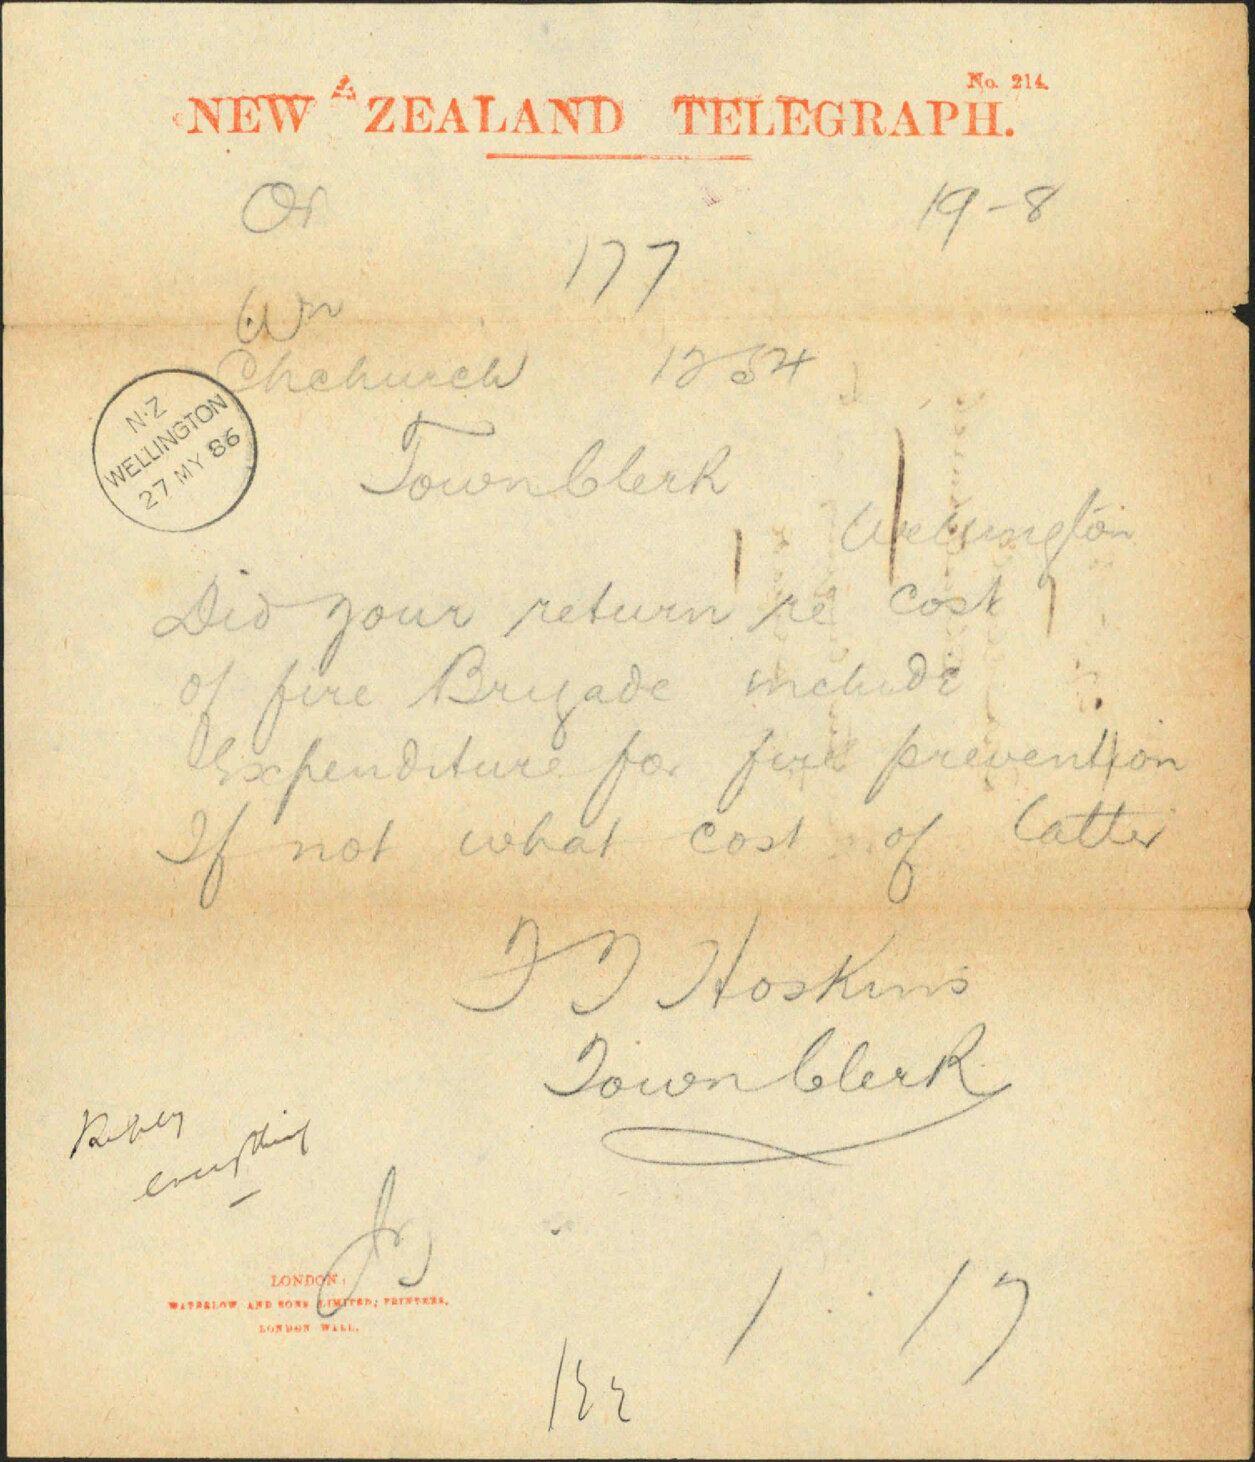 No. 214.
NEW ZEALAND TELEGRAPH.
Or 19-8
177
Wn
Chchurch 1254
N·Z
WELLINGTON
27 MY 86
Town Clerk
Wellington
Did your return re cost
of fire Brigade include
Expenditure for fire prevention
If not what cost of latter
F T Hoskins
Town Clerk
Reply
everything
LONDON:
WATERLOW AND SONS LIMITED, PRINTERS,
LONDON WALL.
1 . . 17